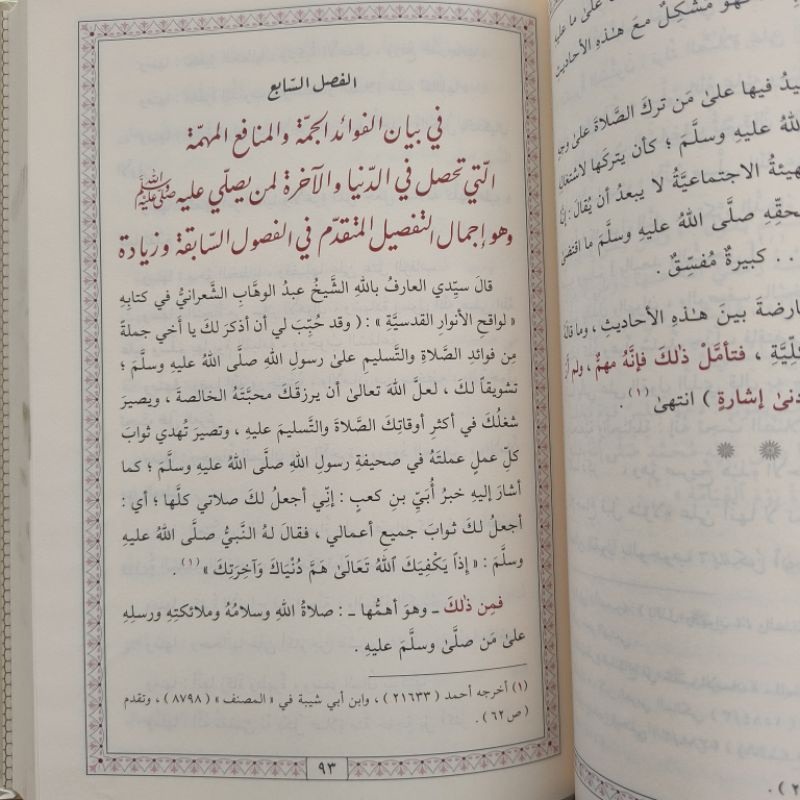 على ما عليه
فهو مشكلٌ معَ هـٰذهِ الأحاديث
فيها علىٰ مَن تركَ الصَّلاةَ علىٰ وجهِ
اللهُ عليهِ وسلَّمَ ؛ كأن يتركَها لاشتغال
الاجتماعيَّةُ لا يبعدُ أن يُقالَ : إنَّ
صلَّى اللهُ عليهِ وسلَّمَ ما اقتضىٰ
. . كبيرةٌ مُفسِّقٌ .
بينَ هـٰذهِ الأحاديثِ ، وما قالَ
، فتأمَّلْ ذٰلكَ فإنَّهُ مهمٌّ ، ولم أرَ
إشارةٍ ) انتهىٰ (١) .
الفصل السّابع
في بيان الفوائد الجمّة والمنافع المهمّة
الّتي تحصل في الدّنيا والآخرة لمن يصلّي عليه ﷺ
وهو إجمال التفصيل المتقدّم في الفصول السّابقة وزيادة
قالَ سيِّدي العارفُ باللهِ الشَّيخُ عبدُ الوهَّابِ الشَّعرانيُّ في كتابِهِ
« لواقحِ الأنوارِ القدسيَّةِ » : ( وقد حُبِّبَ لي أن أذكرَ لكَ يا أخي جملةً
مِن فوائدِ الصَّلاةِ والتَّسليمِ علىٰ رسولِ اللهِ صلَّى اللهُ عليهِ وسلَّمَ ؛
تشويقاً لكَ ، لعلَّ اللهَ تعالىٰ أن يرزقَكَ محبَّتَهُ الخالصةَ ، ويصيرَ
شغلُكَ في أكثرِ أوقاتِكَ الصَّلاةَ والتَّسليمَ عليهِ ، وتصيرَ تُهدي ثوابَ
كلِّ عملٍ عملتَهُ في صحيفةِ رسولِ اللهِ صلَّى اللهُ عليهِ وسلَّمَ ؛ كما
أشارَ إليهِ خبرُ أُبَيِّ بنِ كعبٍ : إنِّي أجعلُ لكَ صلاتي كلَّها ؛ أي :
أجعلُ لكَ ثوابَ جميعِ أعمالي ، فقالَ لهُ النَّبيُّ صلَّى اللهُ عليهِ
وسلَّمَ : « إِذاً يَكْفِيَكَ ٱللهُ تَعَالَىٰ هَمَّ دُنْيَاكَ وَآخِرَتِكَ » (١) .
فمِن ذٰلكَ ـ وهوَ أهمُّها ـ : صلاةُ اللهِ وسلامُهُ وملائكتِهِ ورسلِهِ
علىٰ مَن صلَّىٰ وسلَّمَ عليهِ .
(١) أخرجه أحمد ( ٢١٦٣٣ ) ، وابن أبي شيبة في « المصنف » ( ٨٧٩٨ ) ، وتقدم
( ص ٦٢ ) .
٩٣